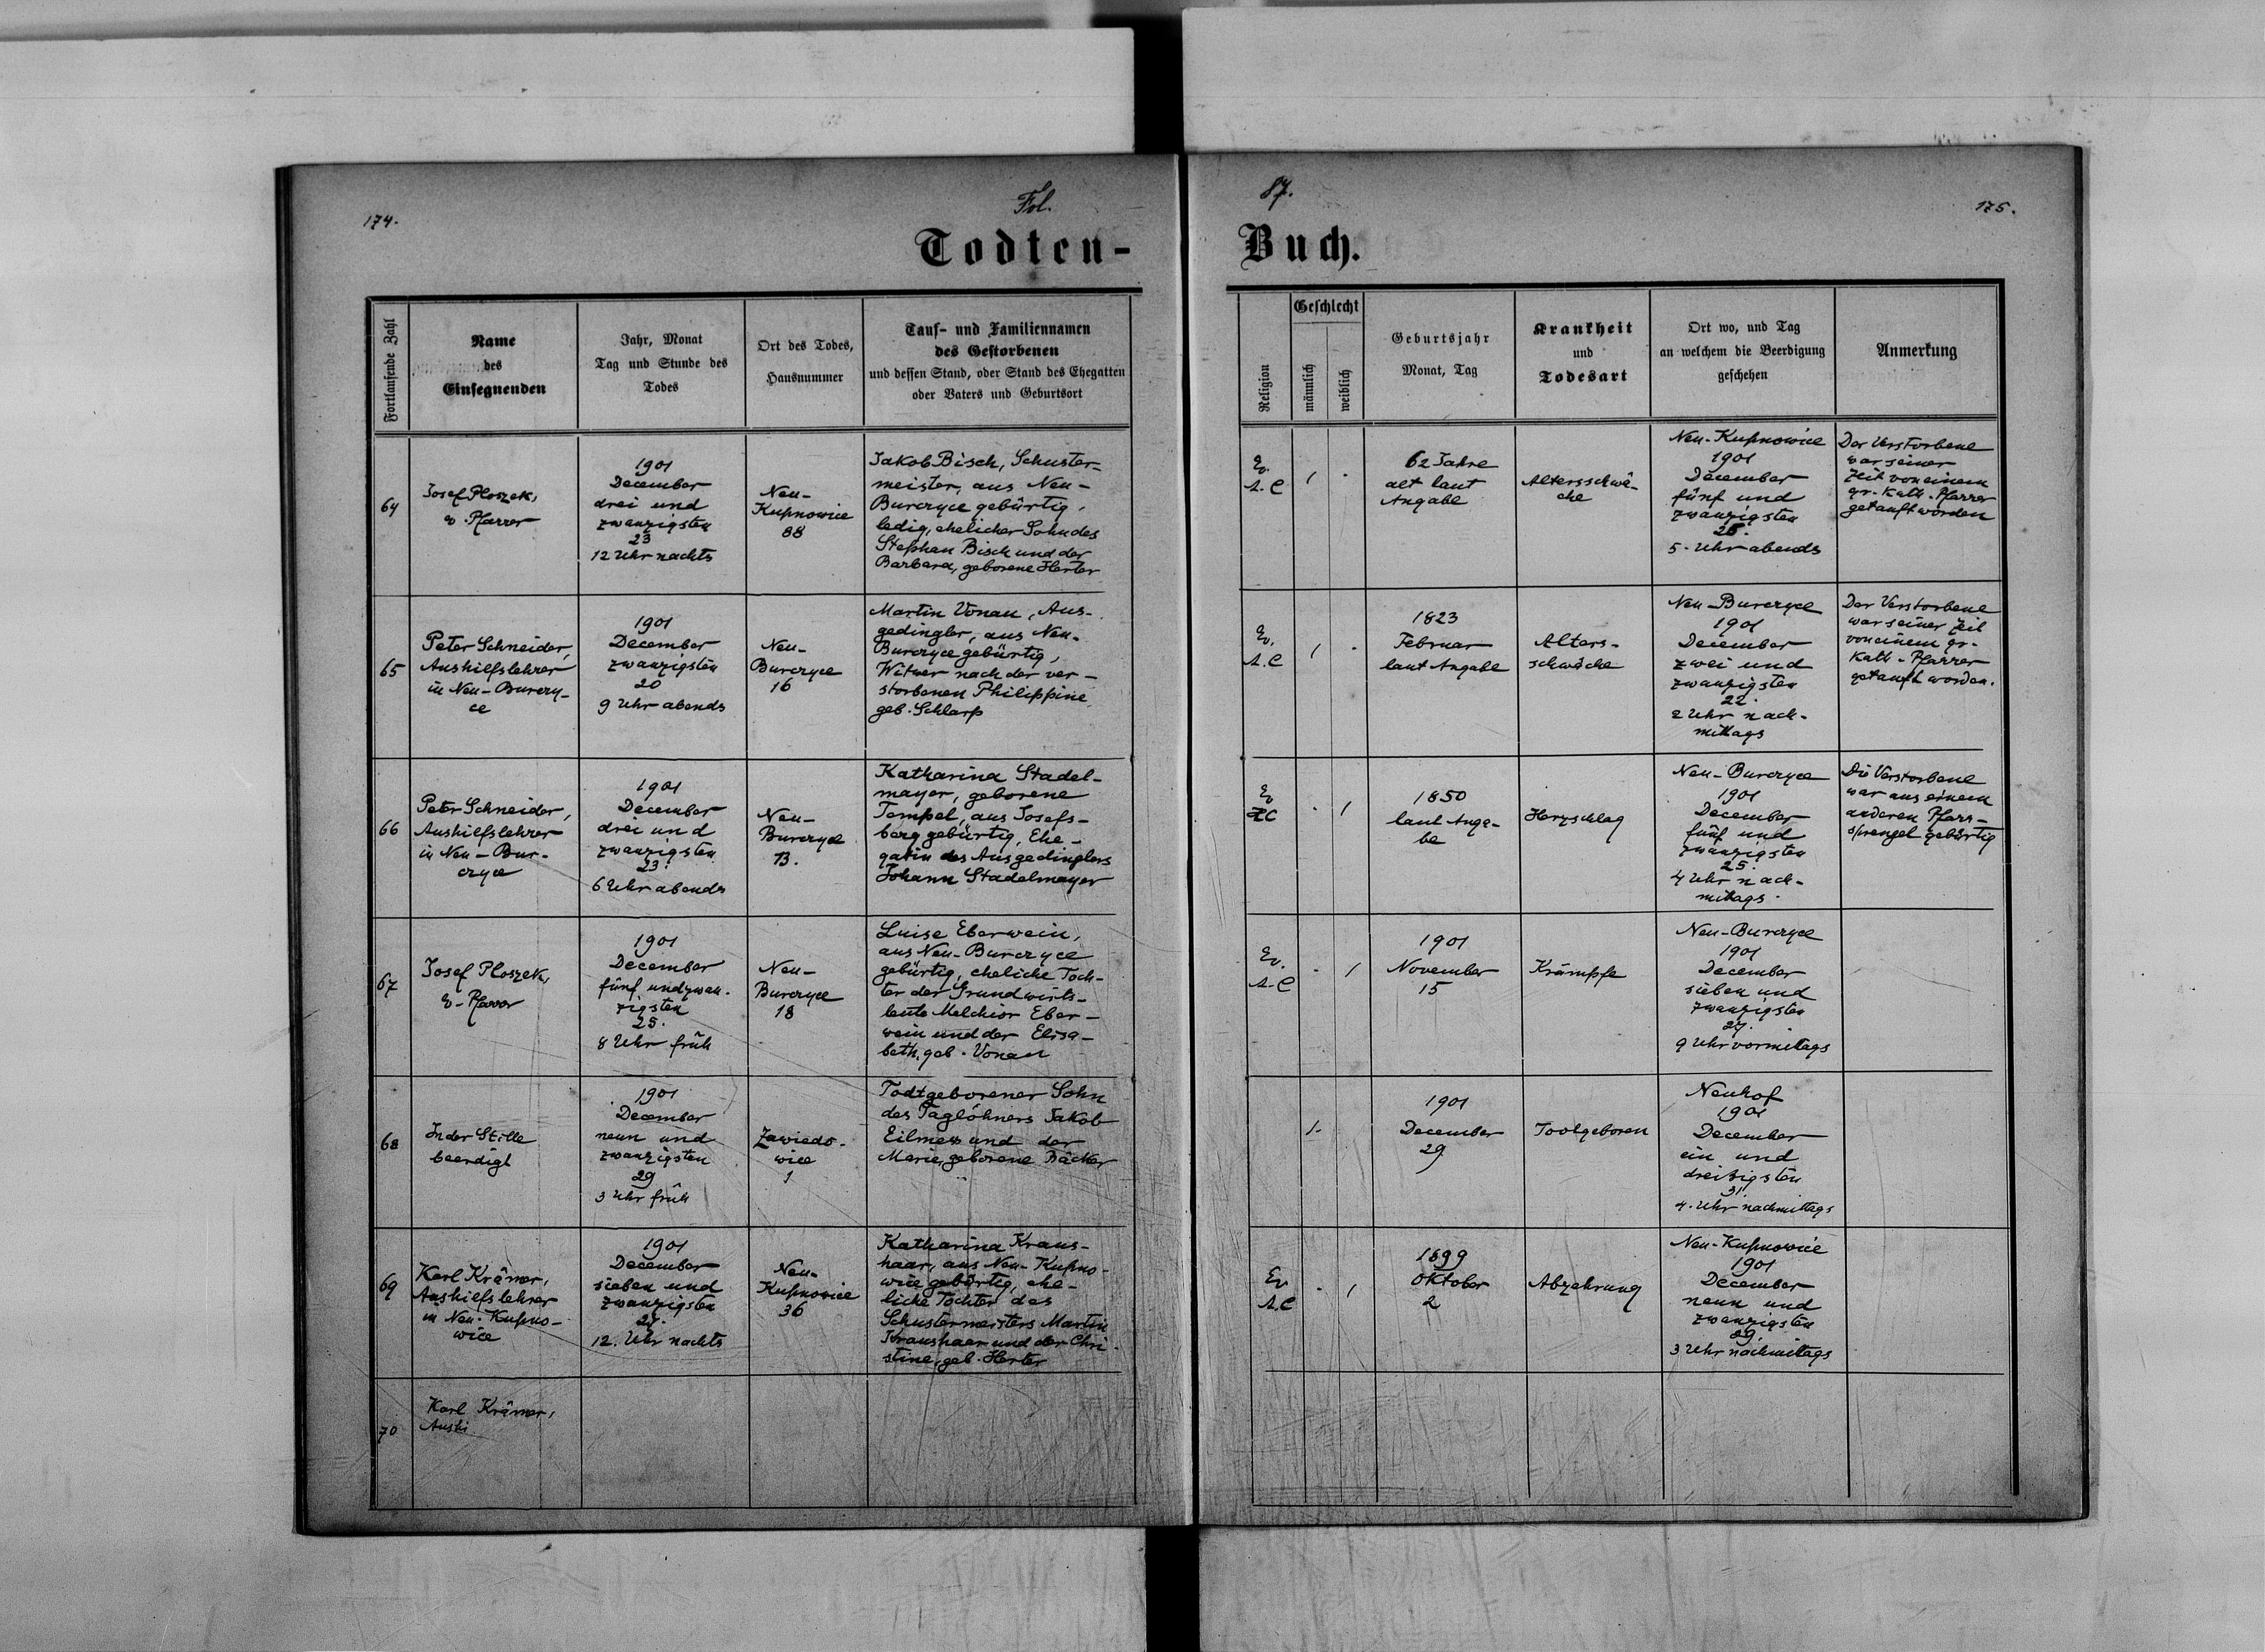 174.
Fol.
87.
175.
Todten-
Buch.
Fortlaufende Zahl
Name
des
Einsegnenden
Jahr, Monat
Tag und Stunde des
Todes
Ort des Todes,
Hausnummer
Tauf- und Familiennamen
des Gestorbenen
und dessen Stand, oder Stand des Ehegatten
oder Vaters und Geburtsort
Religion
Geschlecht
männlich
weiblich
Geburtsjahr
Monat, Tag
Krankheit
und
Todesart
Ort wo, und Tag
an welchem die Beerdigung
geschehen
Anmerkung
64
Josef Ploszek,
ev. Pfarrer
1901
December
drei und
zwanzigsten
23
12 Uhr nachts
Neu-
Kupnowice
88
Jakob Bisch, Schuster-
meister, aus Neu-
Burczyce gebürtig,
ledig, ehelicher Sohn des
Stephan Bisch und der
Barbara, geborene Herter
Ev.
A. C
1
-
62 Jahre
alt laut
Angabe
Altersschwä-
che
Neu-Kupnowice
1901
December
fünf und
zwanzigsten
25.
5. Uhr abends
Der Verstorbene
war seiner
Zeit von einem
gr.-kath. Pfarrer
getauft worden
65
Peter Schneider,
Aushilfslehrer
in Neu-Burczy-
ce
1901
December
zwanzigsten
20
9 Uhr abends
Neu-
Burczyce
16
Martin Vonau, Aus-
gedingler, aus Neu-
Burczyce gebürtig,
Witwer nach der ver-
storbenen Philippine
geb. Schlarp
Ev.
A. C
1
-
1823
Februar
laut Angabe
Alters-
schwäche
Neu-Burczyce
1901
December
zwei und
zwanzigsten
22.
2 Uhr nach-
mittags
Der Verstorbene
war seiner Zeit
von einem gr.-
kath. Pfarrer
getauft worden.
66
Peter Schneider,
Aushilfslehrer
in Neu-Bur-
czyce
1901
December
drei und
zwanzigsten
23.
6 Uhr abends
Neu-
Burczyce
13.
Katharina Stadel-
mayer, geborene
Tempel, aus Josefs-
berg gebürtig, Ehe-
gatin des Ausgedinglers
Johann Stadelmayer
Ev
-
1
1850
laut Anga-
be
Herzschlag
Neu-Burczyce
1901
December
fünf und
zwanzigsten
25.
4 Uhr nach-
mittags.
Die Verstorbene
war aus einem
anderen Pfarr-
sprengel gebürtig
67
Josef Ploszek,
ev. Pfarrer
1901
December
fünf und zwan-
zigsten
25.
8 Uhr früh
Neu-
Burczyce
18
Luise Eberwein,
aus Neu-Burczyce
gebürtig, eheliche Toch-
ter der Grundwirts-
leute Melchior Eber-
wein und der Elisa-
beth, geb. Vonau
Ev.
A. C
-
1
1901
November
15
Krämpfe
Neu-Burczyce
1901
December
sieben und
zwanzigsten
27.
9 Uhr vormittags
68
In der Stille
beerdigt
1901
December
neun und
zwanzigsten
29
3 Uhr früh
Zawido-
wice
1
Todtgeborener Sohn
des Taglöhners Jakob
Eilmess und der
Marie, geborene Bäcker
1.
1901
December
29
Todgeboren
Neuhof
1901
December
ein und
dreißigsten
31
4. Uhr nachmittags
69
Karl Krämer,
Aushilfslehrer
in Neu-Kupno-
wice
1901
December
sieben und
zwanzigsten
27.
12. Uhr nachts
Neu-
Kupnowice
36
Katharina Kraus-
haar, aus Neu-Kupno-
wice gebürtig, ehe-
liche Tochter des
Schustermeisters Martin
Kraushaar und der Chri-
stine, geb. Herter
Ev
A. C
-
1
1899
Oktober
2
Abzehrung
Neu-Kupnowice
1901
December
neun und
zwanzigsten
29.
3 Uhr nachmittags
70
Karl Krämer,
Aushi